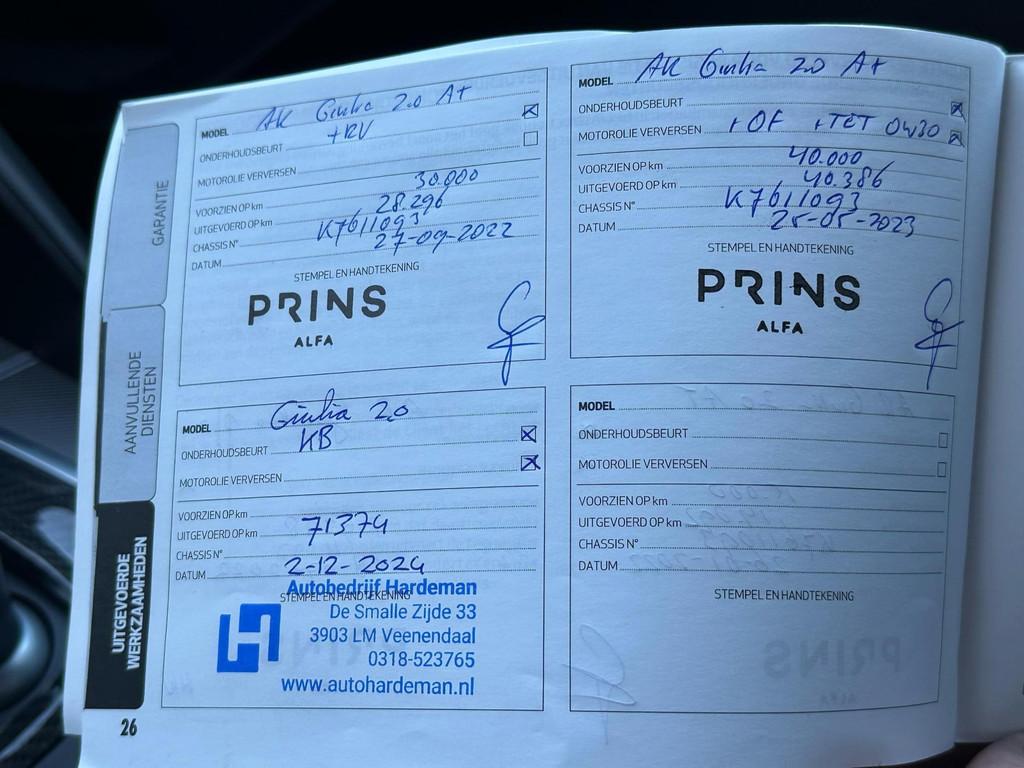 GARANTIE
AANVULLENDE DIENSTEN
UITGEVOERDE WERKZAAMHEDEN
26
MODEL AR Giulia 2.0 A+
ONDERHOUDSBEURT +RV
MOTOROLIE VERVERSEN
VOORZIEN OP km 30.000
UITGEVOERD OP km 28.296
CHASSIS N° K7611093
DATUM 27-09-2022
STEMPEL EN HANDTEKENING
PRINS
ALFA
MODEL AR Giulia 2.0 A+
ONDERHOUDSBEURT
MOTOROLIE VERVERSEN + OF + TET 0W30
VOORZIEN OP km 40.000
UITGEVOERD OP km 40.386
CHASSIS N° K7611093
DATUM 25-05-2023
STEMPEL EN HANDTEKENING
PRINS
ALFA
MODEL Giulia 2.0
ONDERHOUDSBEURT KB
MOTOROLIE VERVERSEN
VOORZIEN OP km
UITGEVOERD OP km 71374
CHASSIS N°
DATUM 2-12-2024
STEMPEL EN HANDTEKENING
Autobedrijf Hardeman
De Smalle Zijde 33
3903 LM Veenendaal
0318-523765
www.autohardeman.nl
MODEL
ONDERHOUDSBEURT
MOTOROLIE VERVERSEN
VOORZIEN OP km
UITGEVOERD OP km
CHASSIS N°
DATUM
STEMPEL EN HANDTEKENING